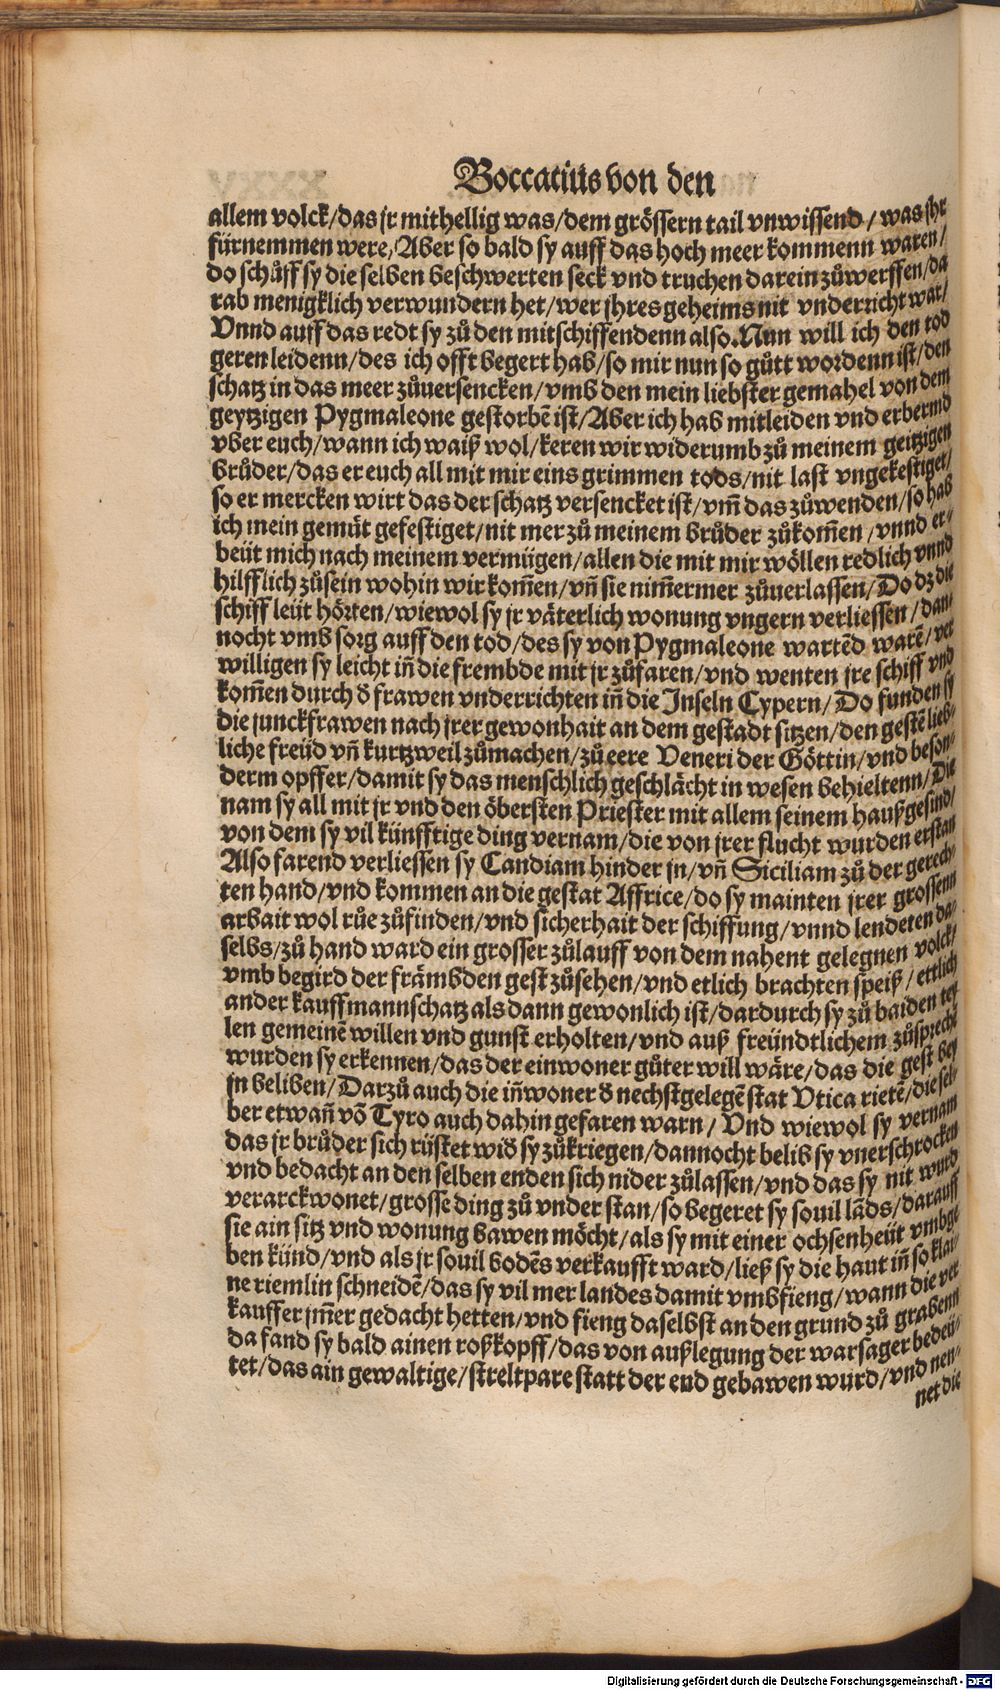 Boccatius von den
allem volck/das jr mithellig was/dem grössern tail vnwissend/was jhr
fürnemmen were/Aber so bald sy auff das hoch meer kommenn waren/
do schůff sy die selben beschwerten seck vnd truchen darein zůwerffen/da
rab menigklich verwundern het/wer jhres geheims nit vnderricht war/
Vnnd auff das redt sy zů den mitschiffendenn also. Nun will ich den tod
geren leidenn/des ich offt begert hab/so mir nun so gůtt wordenn ist/den
schatz in das meer zůuersencken/vmb den mein liebster gemahel von dem
geytzigen Pygmaleone gestorbē ist/Aber ich hab mitleiden vnd erbermd
vber euch/wann ich waiß wol/keren wir widerumb zů meinem geitzigen
brůder/das er euch all mit mir eins grimmen tods/nit last vngekestiget/
so er mercken wirt das der schatz versencket ist/vm̄ das zůwenden/so hab
ich mein gemüt gefestiget/nit mer zů meinem brůder zůkom̄en/vnnd er-
beüt mich nach meinem vermügen/allen die mit mir wöllen redlich vnnd
hilfflich zůsein wohin wir kom̄en/vn̄ sie nim̄ermer zůuerlassen/Do dz die
schiff leüt hörten/wiewol sy jr väterlich wonung vngern verliessen/dan-
nocht vmb sorg auff den tod/des sy von Pygmaleone wartēd warē/ver
willigen sy leicht in̄ die frembde mit jr zůfaren/vnd wenten jre schiff vnd
kom̄en durch d̄ frawen vnderrichten in̄ die Inseln Cypern/Do funden sy
die junckfrawen nach jrer gewonhait an dem gestadt sitzen/den gestē lieb-
liche freüd vn̄ kurtzweil zůmachen/zů eere Veneri der Göttin/vnd beson-
derm opffer/damit sy das menschlich geschlächt in wesen behieltenn/Die
nam sy all mit jr vnd den öbersten Priester mit allem seinem haußgesind/
von dem sy vil künfftige ding vernam/die von jrer flucht wurden erstan
Also farend verliessen sy Candiam hinder jn/vn̄ Siciliam zů der gerech-
ten hand/vnd kommen an die gestat Affrice/do sy mainten jrer grossenn
arbait wol růe zůfinden/vnd sicherhait der schiffung/vnnd lendeten da-
selbs/zů hand ward ein grosser zůlauff von dem nahent gelegnen volck/
vmb begird der främbden gest zůsehen/vnd etlich brachten speiß/ettlich
ander kauffmannschatz als dann gewonlich ist/dardurch sy zů baiden tey
len gemeinē willen vnd gunst erholten/vnd auß freündtlichem zůsprechē
wurden sy erkennen/das der einwoner gůter will wäre/das die gest bey
jn beliben/Darzů auch die in̄woner d̄ nechstgelegē stat Vtica rietē/die sel-
ber etwan̄ vō Tyro auch dahin gefaren warn/Vnd wiewol sy vernam
das jr brůder sich rüstet wid̄ sy zůkriegen/dannocht belib sy vnerschrocken
vnd bedacht an den selben enden sich nider zůlassen/vnd das sy nit wurd
verarckwonet/grosse ding zů vnder stan/so begeret sy souil lāds/darauff
sie ain sitz vnd wonung bawen möcht/als sy mit einer ochsenheüt vmbge
ben künd/vnd als jr souil bodēs verkaufft ward/ließ sy die haut in̄ so klai-
ne riemlin schneidē/das sy vil mer landes damit vmbfieng/wann die ver
kauffer jm̄er gedacht hetten/vnd fieng daselbst an den grund zů grabenn
da fand sy bald ainen roßkopff/das von außlegung der warsager bedeü-
tet/das ain gewaltige/streitpare statt der end gebawen wurd/vnd nen-
net die
Digitalisierung gefördert durch die Deutsche Forschungsgemeinschaft - DFG